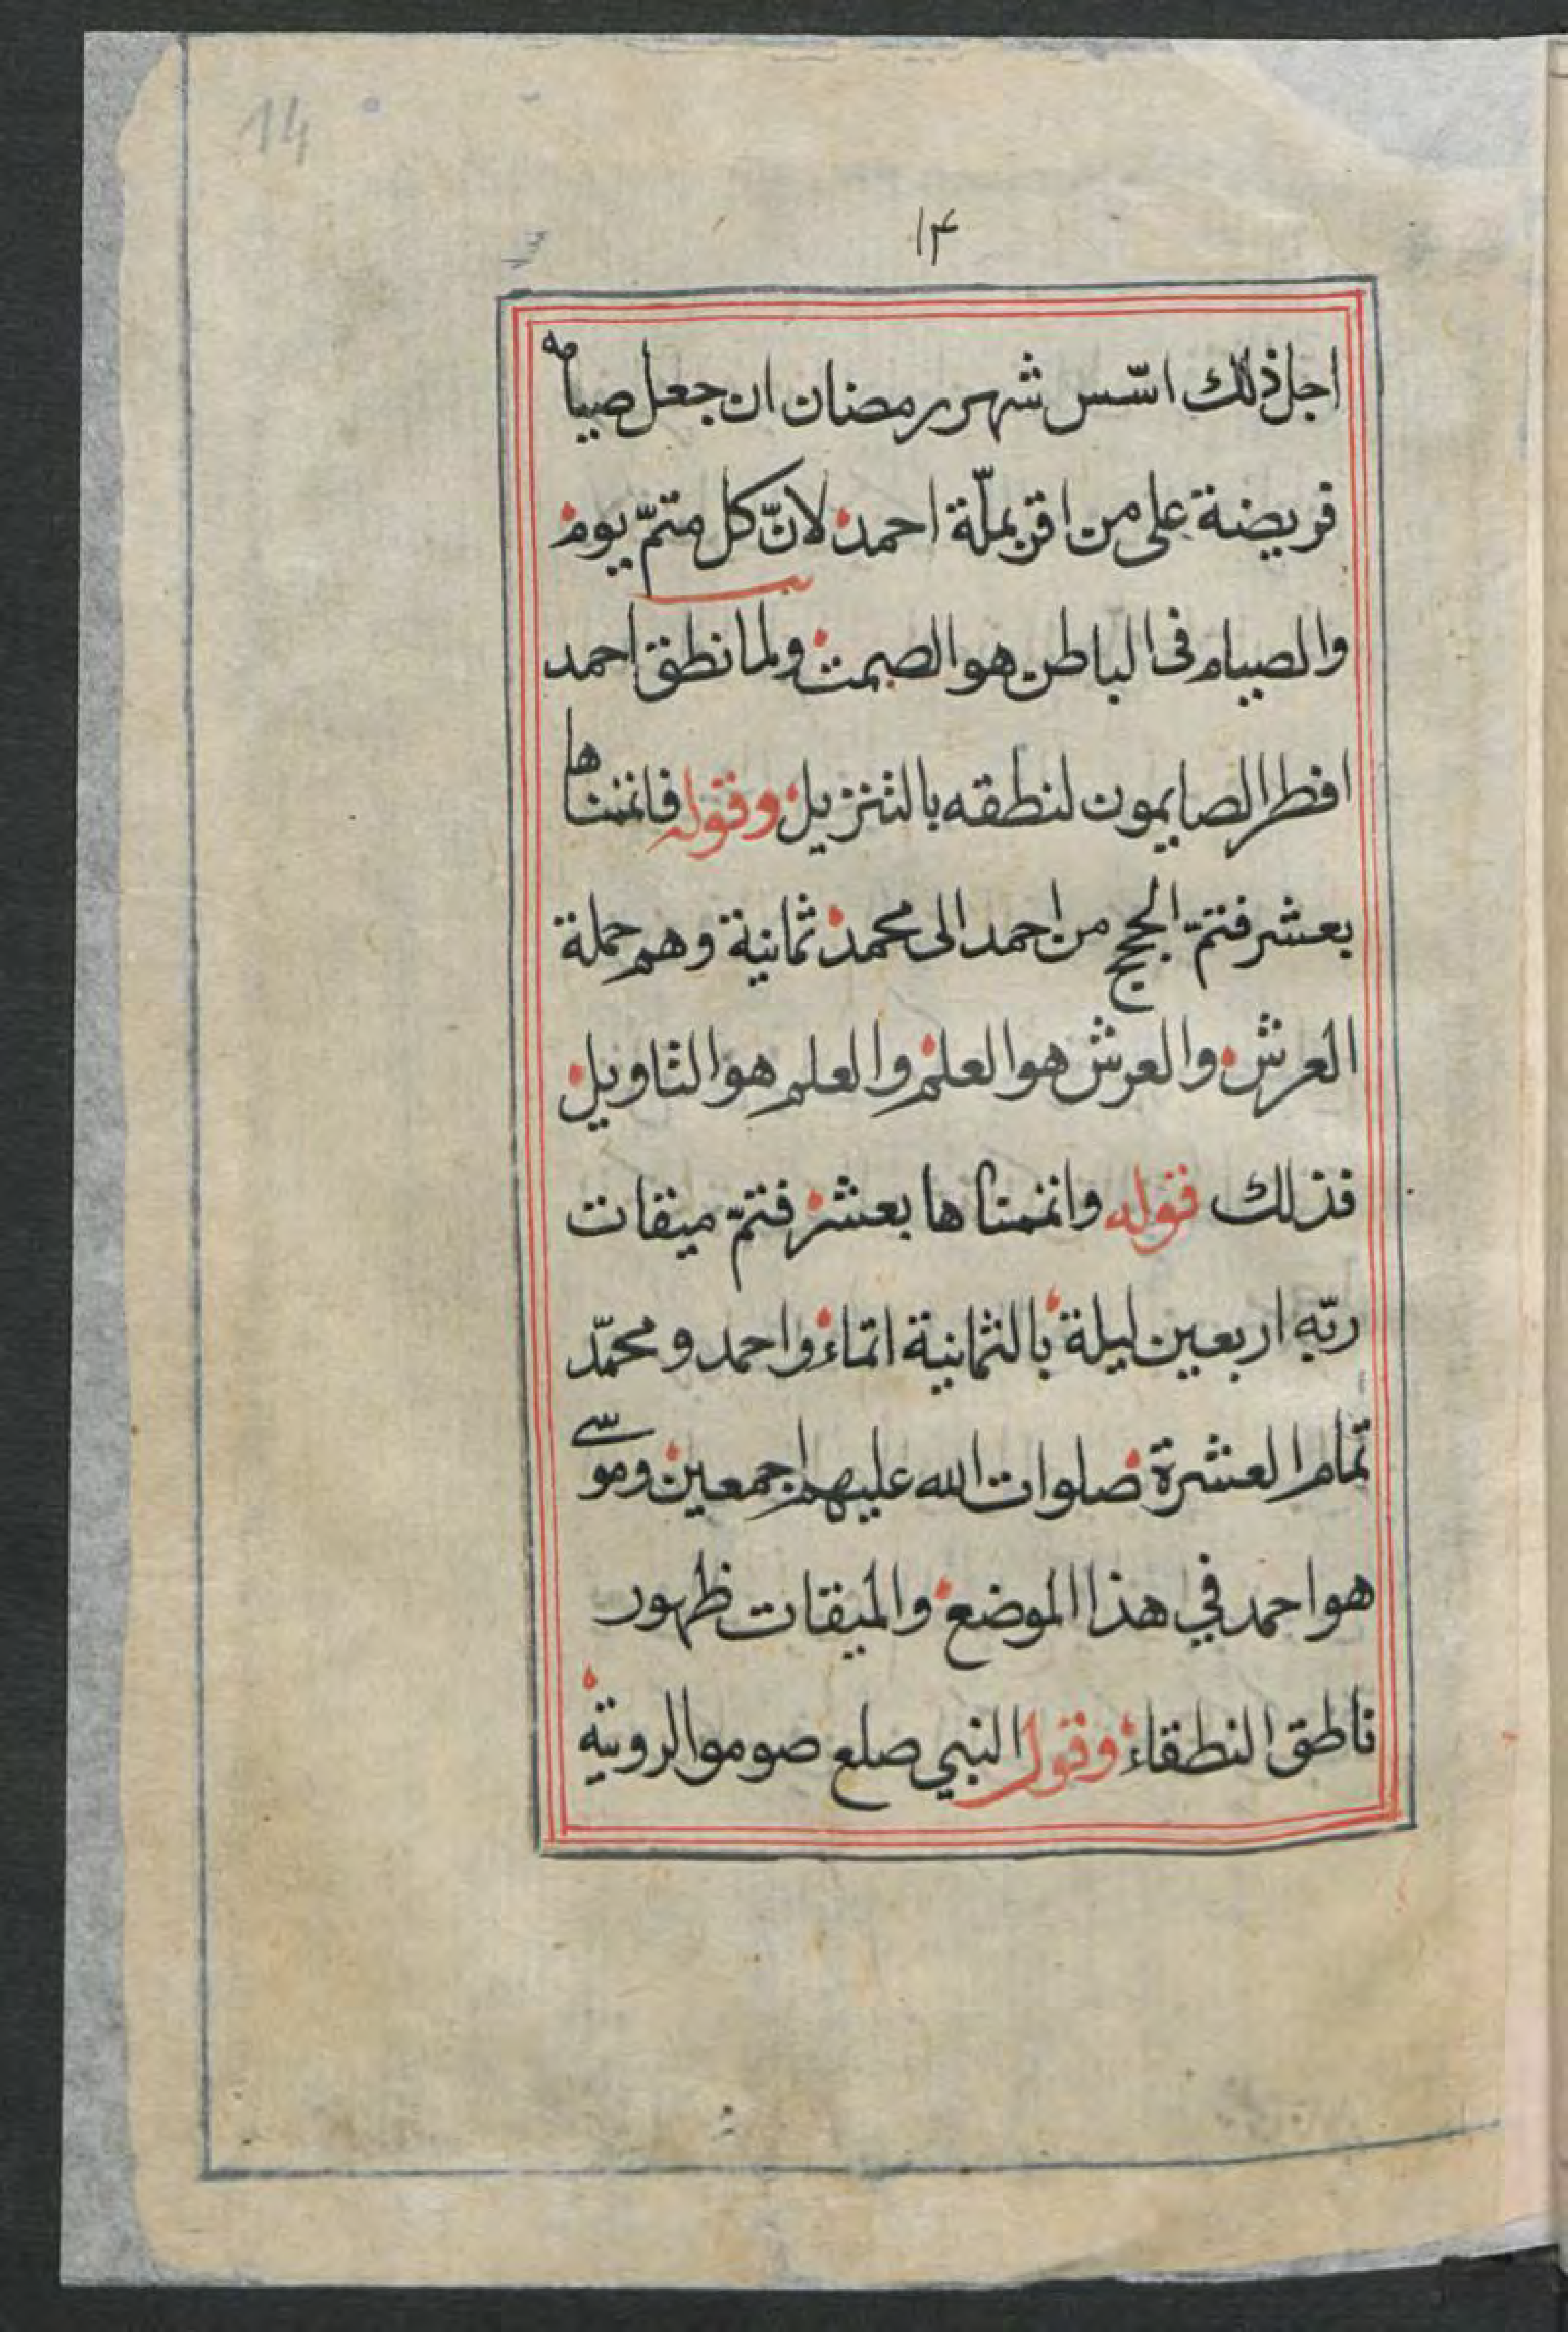 14
١٤
اجل ذلك اسّس شهر رمضان ان جعل صيامه
فريضة على من اقرّ بملّة احمد لانّ كل متمّ يوم
والصيام فى الباطن هو الصمت ولما نطق احمد
افطر الصايمون لنطقه بالتنزيل وقوله فاتممناها
بعشر فتمّ الحجج من احمد الى محمد ثمانية وهم حملة
العرش والعرش هو العلم والعلم هو التاويل
فذلك قوله واتممناها بعشر فتمّ ميقات
ربّه اربعين ليلة بالثمانية اتماء واحمد ومحمّد
تمام العشرة صلوات الله عليهم اجمعين وموسى
هو احمد في هذا الموضع والميقات ظهور
ناطق النطقاء وقول النبي صلع صوموا لرويته